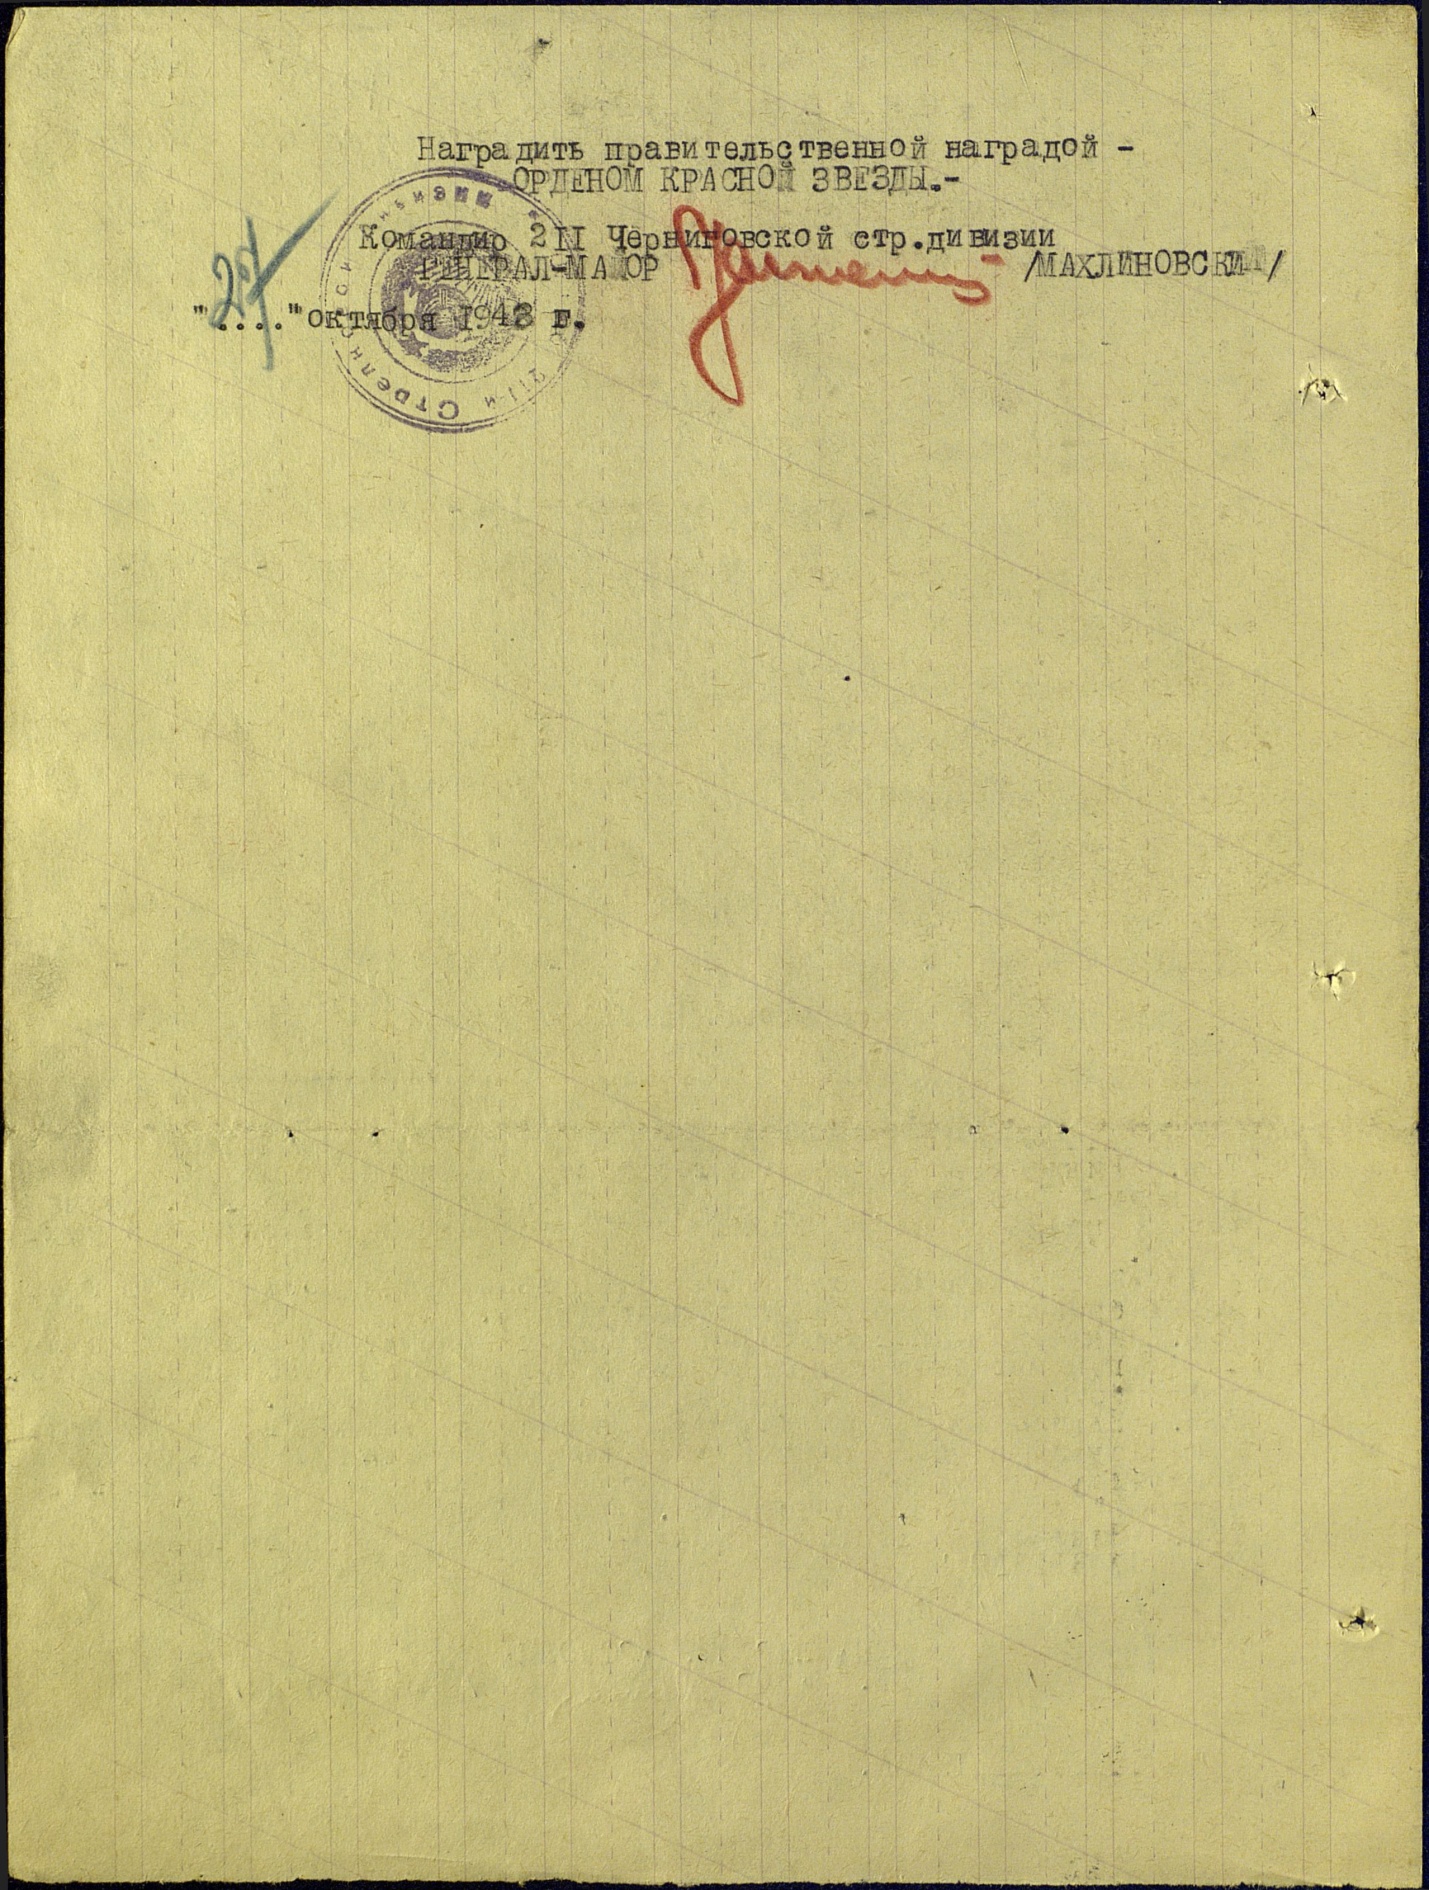 Наградить правительственной наградой -
ОРДЕНОМ КРАСНОЙ ЗВЕЗДЫ.-
Командир 2II Черниговской стр.дивизии
ГЕНЕРАЛ-МАЙОР /МАХЛИНОВСКИЙ/
"...." октября 1943 г.
211-й Стрелковой дивизии